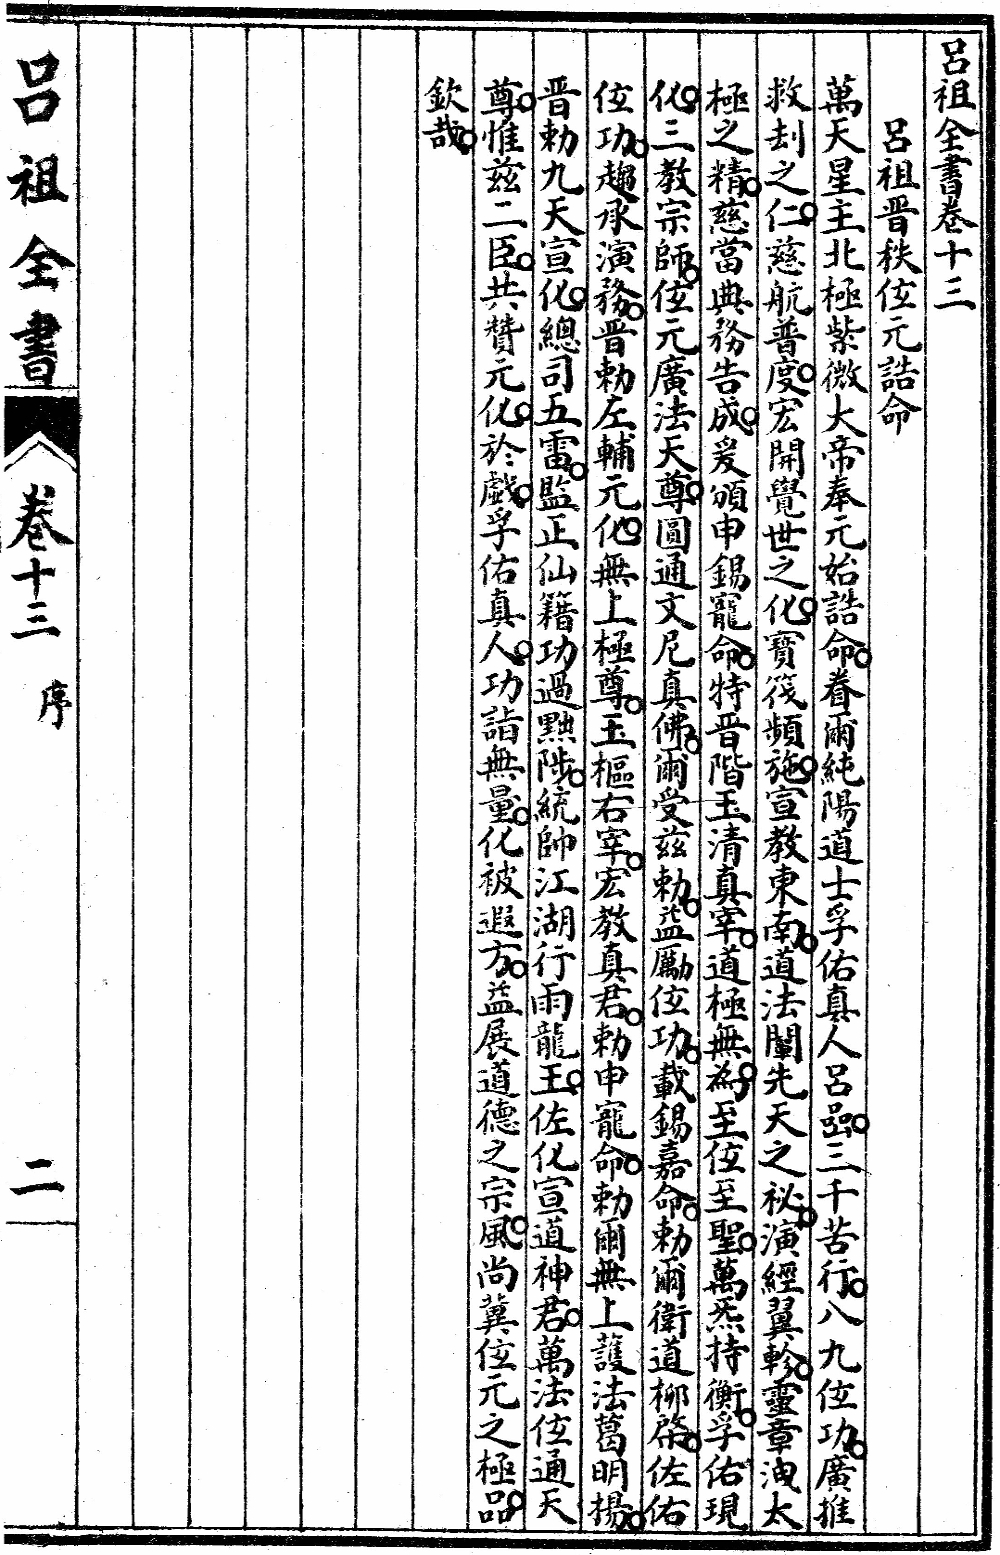 呂祖全書卷十三
呂祖晋秩位元誥命
萬天星主北極紫微大帝奉元始誥命眷爾純陽道士孚佑真人呂嵒三千苦行八九位功廣推
救刦之仁慈航普度宏開覺世之化寶筏頻施宣教東南道法闡先天之祕演經翼軫靈章洩太
極之精慈當典務告成爰頒申錫寵命特晋階玉清真宰道極無為至位至聖萬炁持衡孚佑現
化三教宗師位元廣法天尊圓通文尼真佛爾受茲勅益厲位功載錫嘉命勅爾衛道柳棨佐佑
位功趨承演務晋勅左輔元化無上極尊玉樞右宰宏教真君勅申寵命勅爾無上護法葛明揚
晋勅九天宣化總司五雷監正仙籍功過黜陟統帥江湖行雨龍王佐化宣道神君萬法位通天
尊惟茲二臣共贊元化於戲孚佑真人功詣無量化被遐方益展道德之宗風尚冀位元之極品
欽哉
呂祖全書
卷十三
序
二